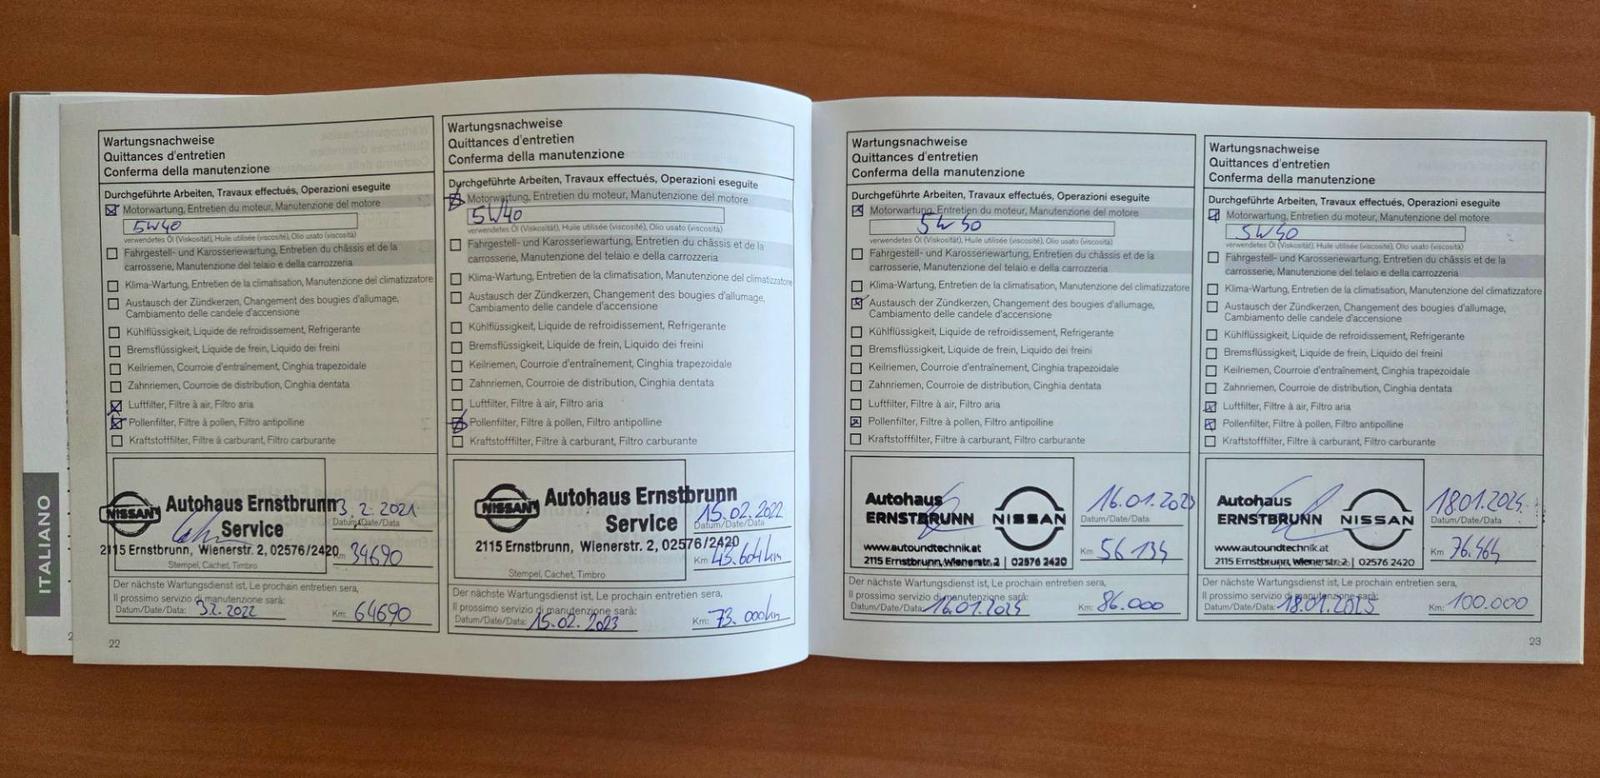 ITALIANO
Wartungsnachweise
Quittances d'entretien
Conferma della manutenzione
Durchgeführte Arbeiten, Travaux effectués, Operazioni eseguite
Motorwartung, Entretien du moteur, Manutenzione del motore
5W40
verwendetes Öl (Viskosität), Huile utilisée (viscosité), Olio usato (viscosità)
Fahrgestell- und Karosseriewartung, Entretien du châssis et de la
carrosserie, Manutenzione del telaio e della carrozzeria
Klima-Wartung, Entretien de la climatisation, Manutenzione del climatizzatore
Austausch der Zündkerzen, Changement des bougies d'allumage,
Cambiamento delle candele d'accensione
Kühlflüssigkeit, Liquide de refroidissement, Refrigerante
Bremsflüssigkeit, Liquide de frein, Liquido dei freini
Keilriemen, Courroie d'entraînement, Cinghia trapezoidale
Zahnriemen, Courroie de distribution, Cinghia dentata
Luftfilter, Filtre à air, Filtro aria
Pollenfilter, Filtre à pollen, Filtro antipolline
Kraftstofffilter, Filtre à carburant, Filtro carburante
NISSAN
Autohaus Ernstbrunn
Service
2115 Ernstbrunn, Wienerstr. 2, 02576/2420
3.2.2021
Datum/Date/Data
34690
Stempel, Cachet, Timbro
Der nächste Wartungsdienst ist, Le prochain entretien sera,
Il prossimo servizio di manutenzione sarà:
Datum/Date/Data: 3.2.2022 Km: 64690
22
Wartungsnachweise
Quittances d'entretien
Conferma della manutenzione
Durchgeführte Arbeiten, Travaux effectués, Operazioni eseguite
Motorwartung, Entretien du moteur, Manutenzione del motore
5W40
verwendetes Öl (Viskosität), Huile utilisée (viscosité), Olio usato (viscosità)
Fahrgestell- und Karosseriewartung, Entretien du châssis et de la
carrosserie, Manutenzione del telaio e della carrozzeria
Klima-Wartung, Entretien de la climatisation, Manutenzione del climatizzatore
Austausch der Zündkerzen, Changement des bougies d'allumage,
Cambiamento delle candele d'accensione
Kühlflüssigkeit, Liquide de refroidissement, Refrigerante
Bremsflüssigkeit, Liquide de frein, Liquido dei freini
Keilriemen, Courroie d'entraînement, Cinghia trapezoidale
Zahnriemen, Courroie de distribution, Cinghia dentata
Luftfilter, Filtre à air, Filtro aria
Pollenfilter, Filtre à pollen, Filtro antipolline
Kraftstofffilter, Filtre à carburant, Filtro carburante
NISSAN
Autohaus Ernstbrunn
Service
2115 Ernstbrunn, Wienerstr. 2, 02576/2420
15.02.2022
Datum/Date/Data
Km 45.604km
Stempel, Cachet, Timbro
Der nächste Wartungsdienst ist, Le prochain entretien sera,
Il prossimo servizio di manutenzione sarà:
Datum/Date/Data: 15.02.2023 Km: 73.000km
Wartungsnachweise
Quittances d'entretien
Conferma della manutenzione
Durchgeführte Arbeiten, Travaux effectués, Operazioni eseguite
Motorwartung, Entretien du moteur, Manutenzione del motore
5W30
verwendetes Öl (Viskosität), Huile utilisée (viscosité), Olio usato (viscosità)
Fahrgestell- und Karosseriewartung, Entretien du châssis et de la
carrosserie, Manutenzione del telaio e della carrozzeria
Klima-Wartung, Entretien de la climatisation, Manutenzione del climatizzatore
Austausch der Zündkerzen, Changement des bougies d'allumage,
Cambiamento delle candele d'accensione
Kühlflüssigkeit, Liquide de refroidissement, Refrigerante
Bremsflüssigkeit, Liquide de frein, Liquido dei freini
Keilriemen, Courroie d'entraînement, Cinghia trapezoidale
Zahnriemen, Courroie de distribution, Cinghia dentata
Luftfilter, Filtre à air, Filtro aria
Pollenfilter, Filtre à pollen, Filtro antipolline
Kraftstofffilter, Filtre à carburant, Filtro carburante
Autohaus
ERNSTBRUNN
NISSAN
www.autoundtechnik.at
2115 Ernstbrunn, Wienerstr. 2 | 02576 2420
16.01.2023
Datum/Date/Data
Km 56134
Der nächste Wartungsdienst ist, Le prochain entretien sera,
Il prossimo servizio di manutenzione sarà:
Datum/Date/Data: 16.01.2025 Km: 86.000
Wartungsnachweise
Quittances d'entretien
Conferma della manutenzione
Durchgeführte Arbeiten, Travaux effectués, Operazioni eseguite
Motorwartung, Entretien du moteur, Manutenzione del motore
5W30
verwendetes Öl (Viskosität), Huile utilisée (viscosité), Olio usato (viscosità)
Fahrgestell- und Karosseriewartung, Entretien du châssis et de la
carrosserie, Manutenzione del telaio e della carrozzeria
Klima-Wartung, Entretien de la climatisation, Manutenzione del climatizzatore
Austausch der Zündkerzen, Changement des bougies d'allumage,
Cambiamento delle candele d'accensione
Kühlflüssigkeit, Liquide de refroidissement, Refrigerante
Bremsflüssigkeit, Liquide de frein, Liquido dei freini
Keilriemen, Courroie d'entraînement, Cinghia trapezoidale
Zahnriemen, Courroie de distribution, Cinghia dentata
Luftfilter, Filtre à air, Filtro aria
Pollenfilter, Filtre à pollen, Filtro antipolline
Kraftstofffilter, Filtre à carburant, Filtro carburante
Autohaus
ERNSTBRUNN
NISSAN
www.autoundtechnik.at
2115 Ernstbrunn, Wienerstr. 2 | 02576 2420
Datum/Date/Data
Km 76.464
Der nächste Wartungsdienst ist, Le prochain entretien sera,
Il prossimo servizio di manutenzione sarà:
Datum/Date/Data: 18.01.2025 Km: 100.000
23